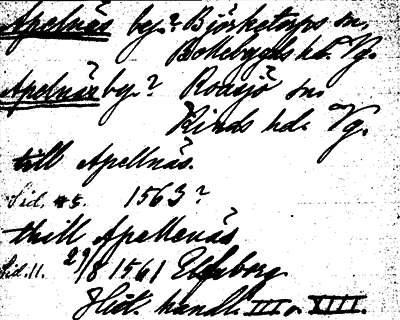 Apelnäs by? Björketorps sn,
Bollebygds hd. Vg.
Apelnäs by? Roasjö sn,
Kinds hd. Vg.
till Apellnäs.
Sid. 5. 1563?
thill Apellenäs
Sid. 11. 29/8 1561 Elfsborg
Hist. handl. III o. XIII.